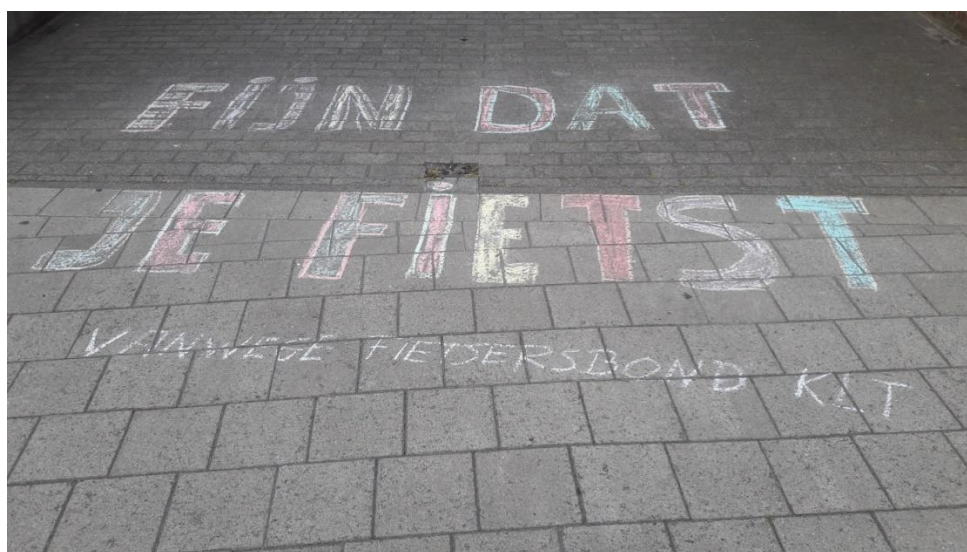 FIJN DAT
JE FIETST
VANWEGE FIETSERSBOND KLT